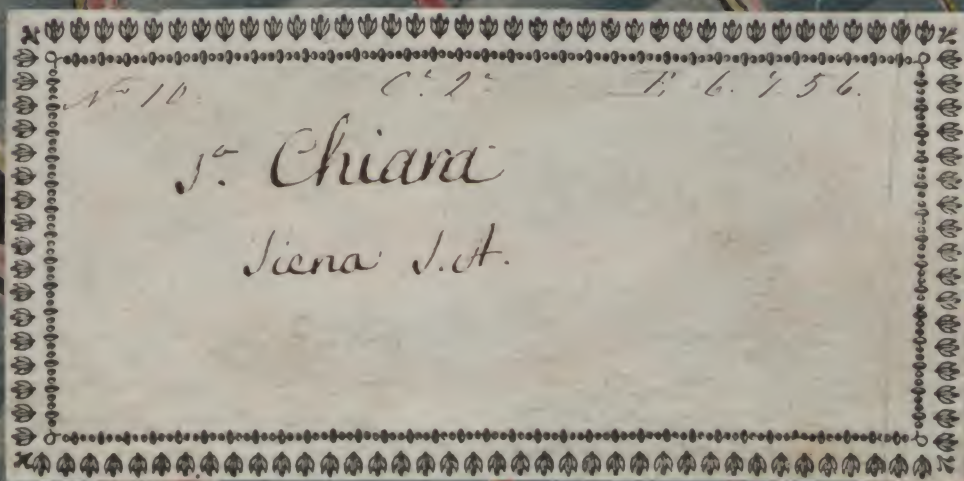 N.º 10. C.ª 2.ª P. 6. 756.
S.ª Chiara
Siena S.A.